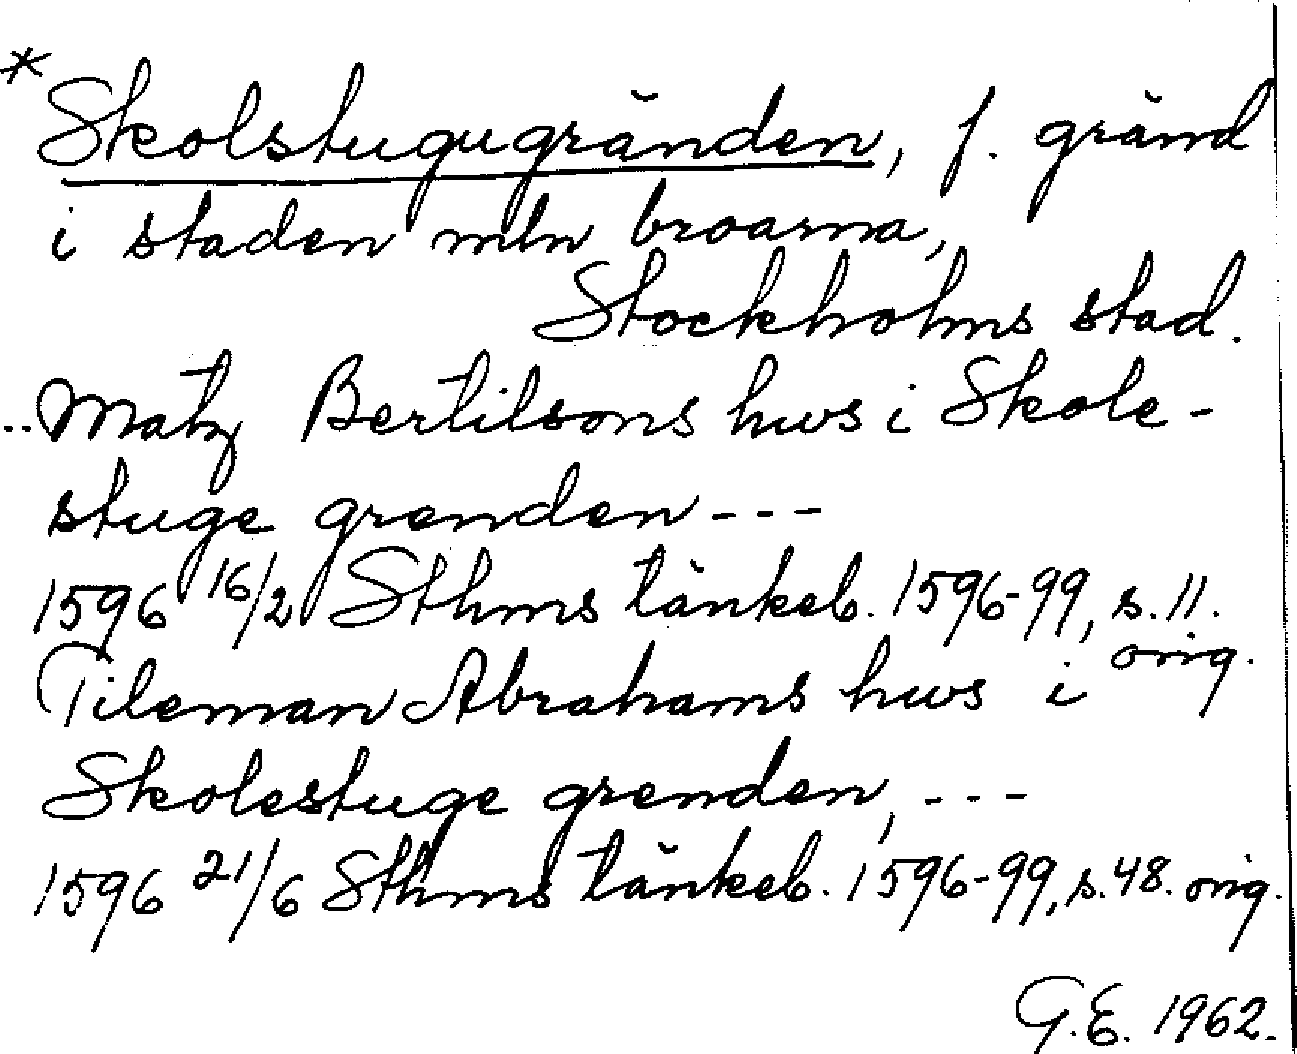 * Skolstugugränden, f. gränd
i staden mln broarna,
Stockholms stad.
.. Matz Bertilsons hws i Skole-
stuge grenden - - -
1596 16/2 Sthms tänkeb. 1596-99, s. 11.
orig.
Tileman Abrahams hws i
Skolestuge grenden, - - -
1596 21/6 Sthms tänkeb. 1596-99, s. 48. orig.
G.E. 1962.